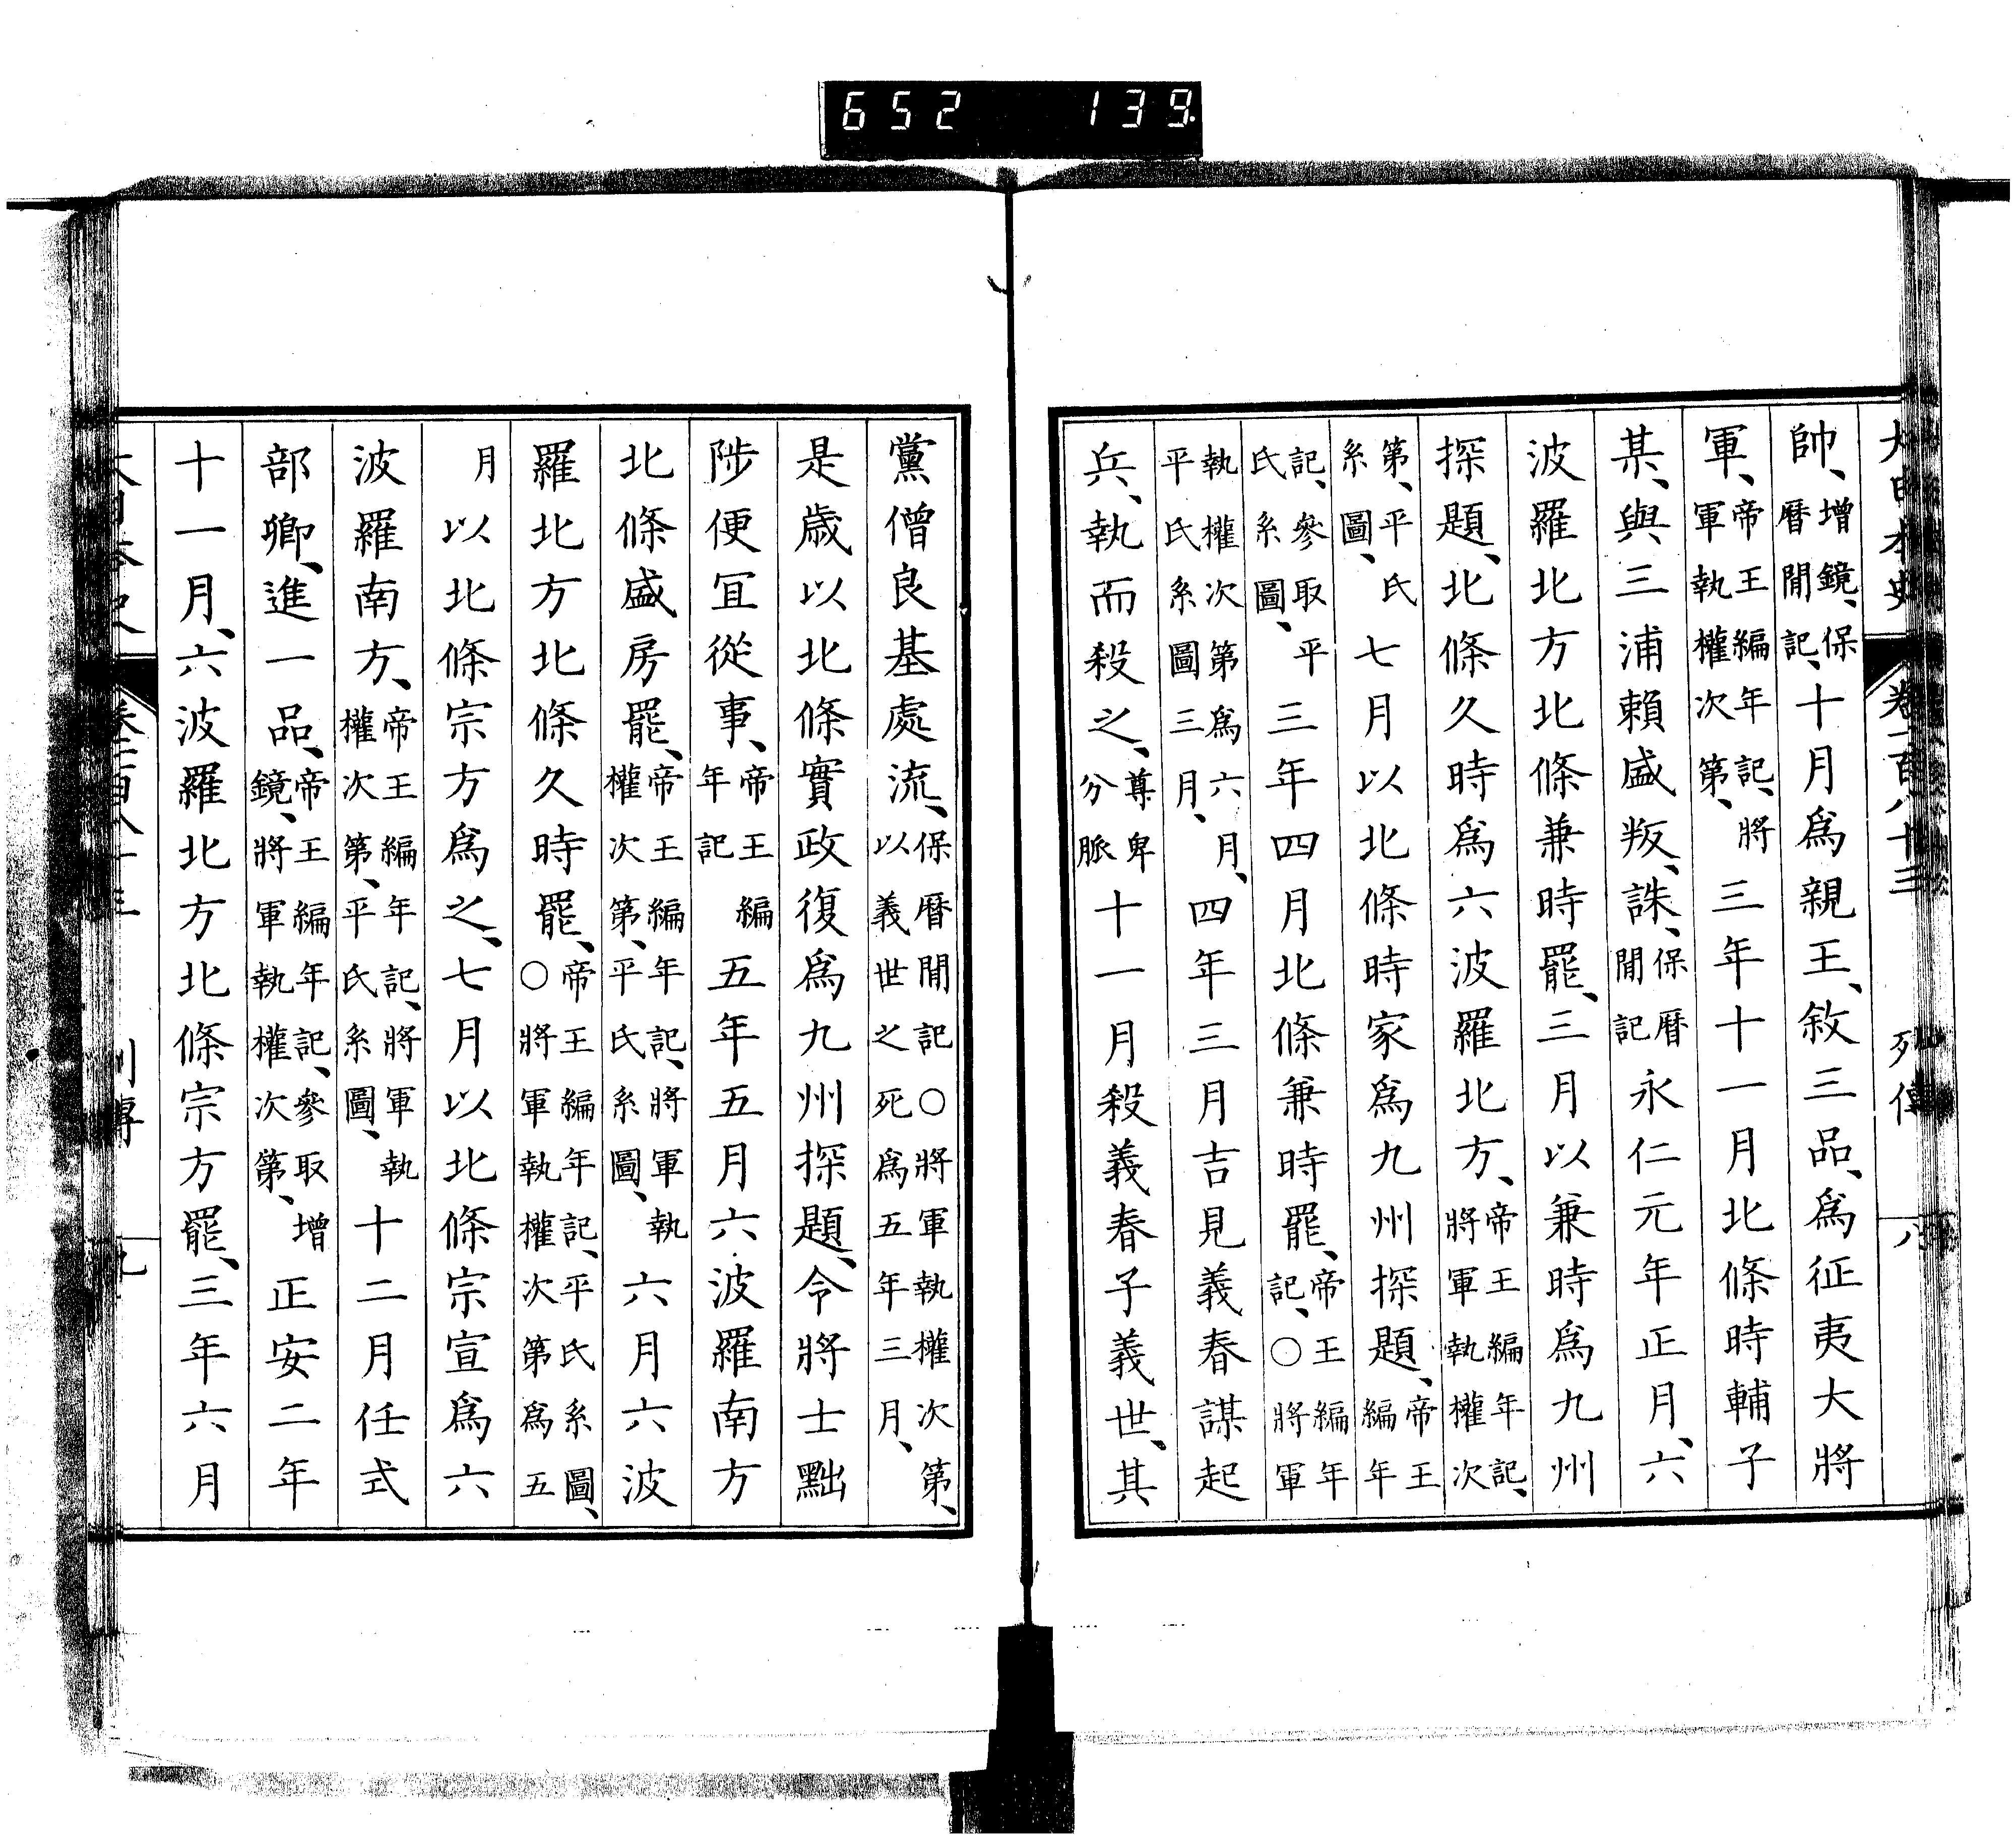 652 139.
大日本史 卷一百八十三 列傳 八
帥、增鏡、保曆閒記、十月爲親王、敘三品、爲征夷大將
軍、帝王編年記、將軍執權次第、三年十一月北條時輔子
某、與三浦賴盛叛、誅、保曆閒記永仁元年正月、六
波羅北方北條兼時罷、三月以兼時爲九州
探題、北條久時爲六波羅北方、帝王編年記、將軍執權次
第、平氏系圖、七月以北條時家爲九州探題、帝王編年
記、參取平氏系圖、三年四月北條兼時罷、帝王編年記、○將軍
執權次第爲六月、平氏系圖三月、四年三月吉見義春謀起
兵、執而殺之、尊卑分脈十一月殺義春子義世、其
黨僧良基處流、保曆閒記○將軍執權次第、以義世之死爲五年三月、
是歲以北條實政復爲九州探題、令將士黜
陟便宜從事、帝王編年記五年五月六波羅南方
北條盛房罷、帝王編年記、將軍執權次第、平氏系圖、六月六波
羅北方北條久時罷、帝王編年記、平氏系圖、○將軍執權次第爲五
月以北條宗方爲之、七月以北條宗宣爲六
波羅南方、帝王編年記、將軍執權次第、平氏系圖、十二月任式
部卿、進一品、帝王編年記、參取增鏡、將軍執權次第、正安二年
十一月、六波羅北方北條宗方罷、三年六月